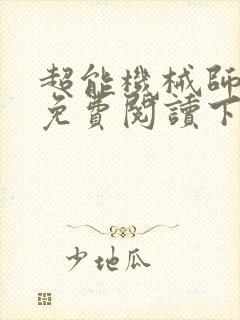 超能機械師
免費閱讀下
少地瓜